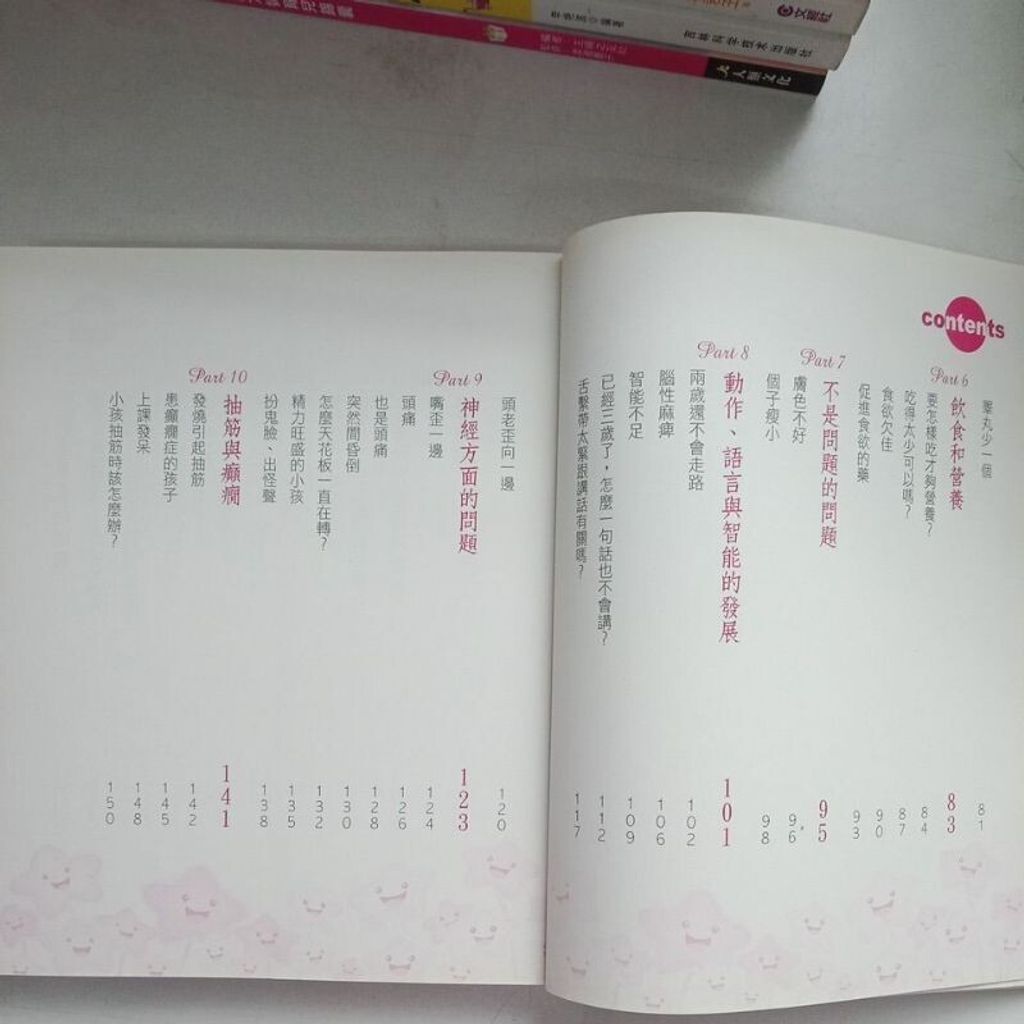 contents
睪丸少一個 81
Part 6
飲食和營養 83
要怎樣吃才夠營養? 84
吃得太少可以嗎? 87
食欲欠佳 90
促進食欲的藥 93
Part 7
不是問題的問題 95
膚色不好 96
個子瘦小 98
Part 8
動作、語言與智能的發展 101
兩歲還不會走路 102
腦性麻痺 106
智能不足 109
已經三歲了,怎麼一句話也不會講? 112
舌繫帶太緊跟講話有關嗎? 117
頭老歪向一邊 120
Part 9
神經方面的問題 123
嘴歪一邊 124
頭痛 126
也是頭痛 128
突然間昏倒 130
怎麼天花板一直在轉? 132
精力旺盛的小孩 135
扮鬼臉、出怪聲 138
Part 10
抽筋與癲癇 141
發燒引起抽筋 142
患癲癇症的孩子 145
上課發呆 148
小孩抽筋時該怎麼辦? 150
文經社
吉林科学技术出版社
人類文化